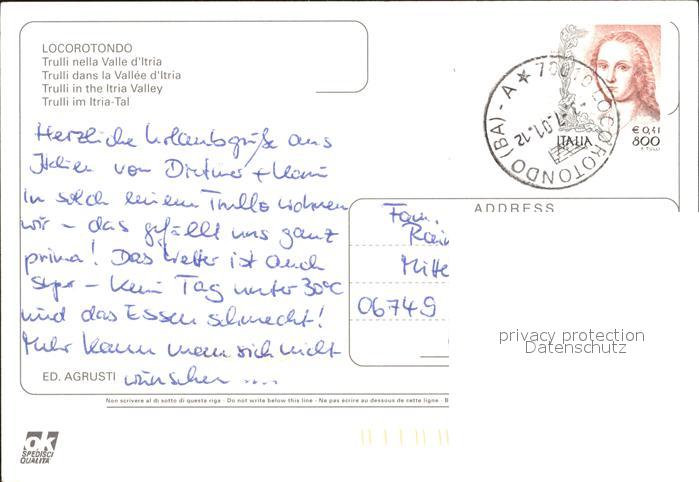 LOCOROTONDO
Trulli nella Valle d'Itria
Trulli dans la Vallée d'Itria
Trulli in the Itria Valley
Trulli im Itria-Tal
Herzliche Urlaubsgrüße aus
Italien von Dietmar +
In solch einem Trullo wohnen
wir – das gefällt uns ganz
prima! Das Wetter ist auch
super – kein Tag unter 30°C
und das Essen schmeckt!
Mehr kann man sich nicht
wünschen ....
ED. AGRUSTI
Non scrivere al di sotto di questa riga - Do not write below this line - Ne pas écrire au dessous de cette ligne - B
ok
SPEDISCI
QUALITÀ
70010 LOCOROTONDO (BA) - A
-7.01.12
€ 0,41
ITALIA 800
ADDRESS
Fam.
Rain
Mitte
06749
privacy protection
Datenschutz